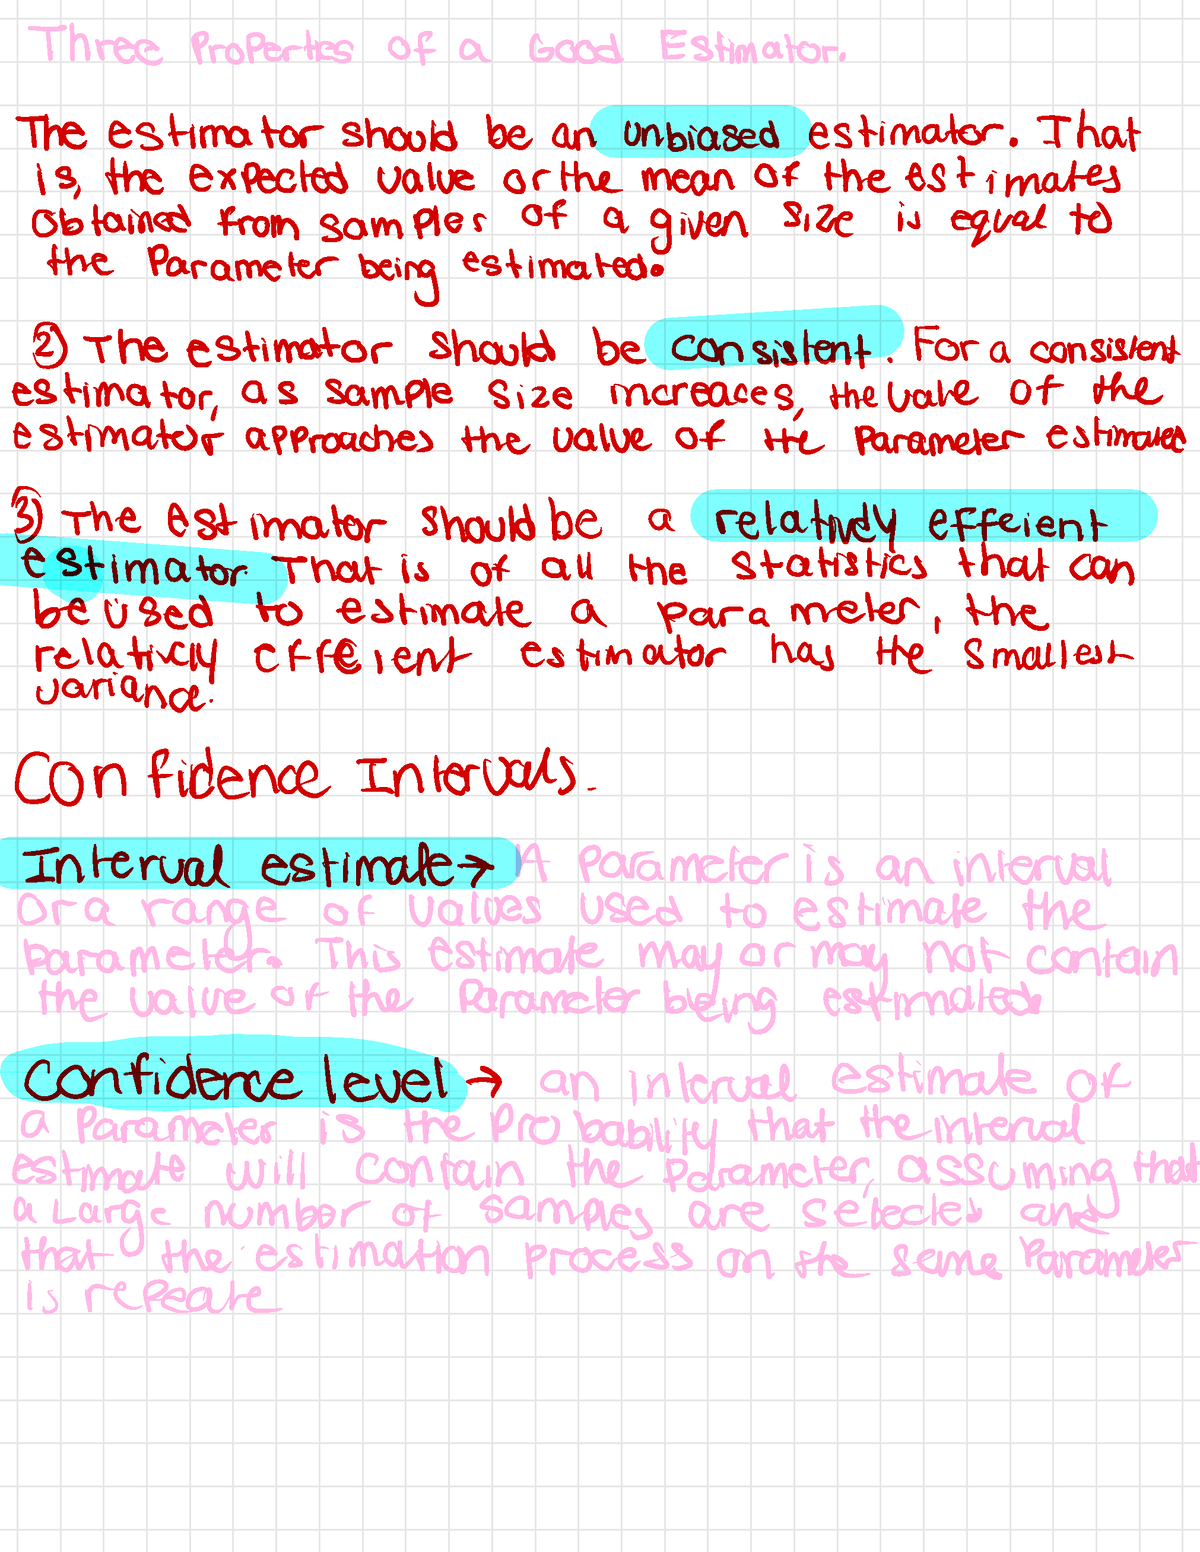 Three Properties of a Good Estimator.
The estimator should be an unbiased estimator. That
is, the expected value or the mean of the estimates
obtained from samples of a given size is equal to
the Parameter being estimated.
② The estimator should be consistent. For a consistent
estimator, as sample size increaces, the value of the
estimator approaches the value of the parameter estimated
③ The estimator should be a relatively effeient
estimator. That is of all the statistics that can
be used to estimate a parameter, the
relatively effeient estimator has the smallest
variance.
Confidence Intervals.
Interval estimate → A Parameter is an interval
or a range of values used to estimate the
parameter. This estimate may or may not contain
the value of the Parameter being estimated.
Confidence level → an interval estimate of
a Parameter is the Probability that the interval
estimate will contain the parameter, assuming that
a large number of samples are selected and
that the estimation process on the same Parameter
is repeate